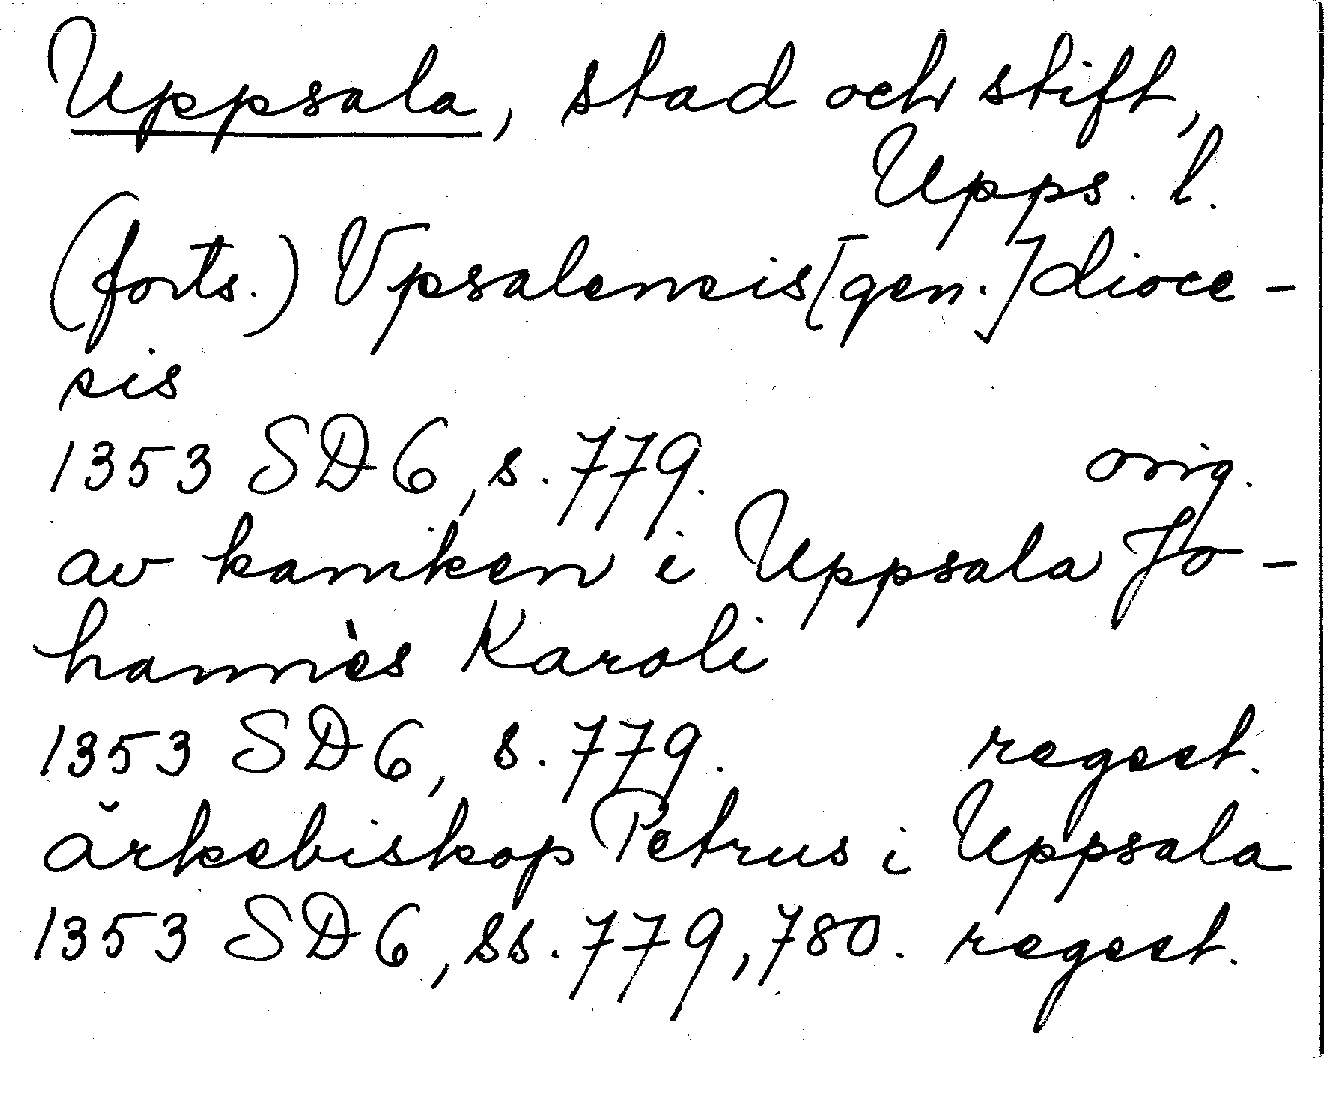 Uppsala, stad och stift,
Upps. l.
(forts.) Vpsalensis [gen.] dioce-
sis
1353 SD 6, s. 779. orig.
av kaniken i Uppsala Jo-
hannes Karoli
1353 SD 6, s. 779. regest.
ärkebiskop Petrus i Uppsala
1353 SD 6, ss. 779, 780. regest.